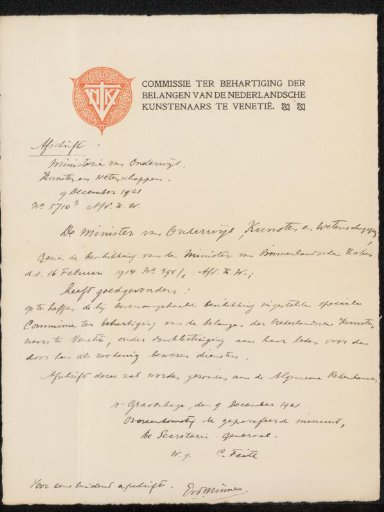 COMMISSIE TER BEHARTIGING DER
BELANGEN VAN DE NEDERLANDSCHE
KUNSTENAARS TE VENETIË.
Afschrift
Ministerie van Onderwijs,
Kunsten en Wetenschappen.
9 December 1921
No 5710³ Afd. K.W.
De Minister van Onderwijs, Kunsten en Wetenschappen
Gezien de beschikking van den Minister van Binnenlandsche Zaken
d.d. 16 Februari 1914 No 395/1, Afd. K.W.;
heeft goedgevonden:
op te heffen de bij bovenaangehaalde beschikking ingestelde speciale
Commissie ter behartiging van de belangen der Nederlandsche Kunste-
naars te Venetië, onder dankbetuiging aan haar leden voor de
door hen als zoodanig bewezen diensten.
Afschrift dezer zal worden gezonden aan de Algemeene Rekenkamer.
's Gravenhage, den 9 December 1921
Overeenkomstig de geparafeerde minuut,
De Secretaris Generaal.
w.g. C. Feith
Voor eensluidend afschrift.